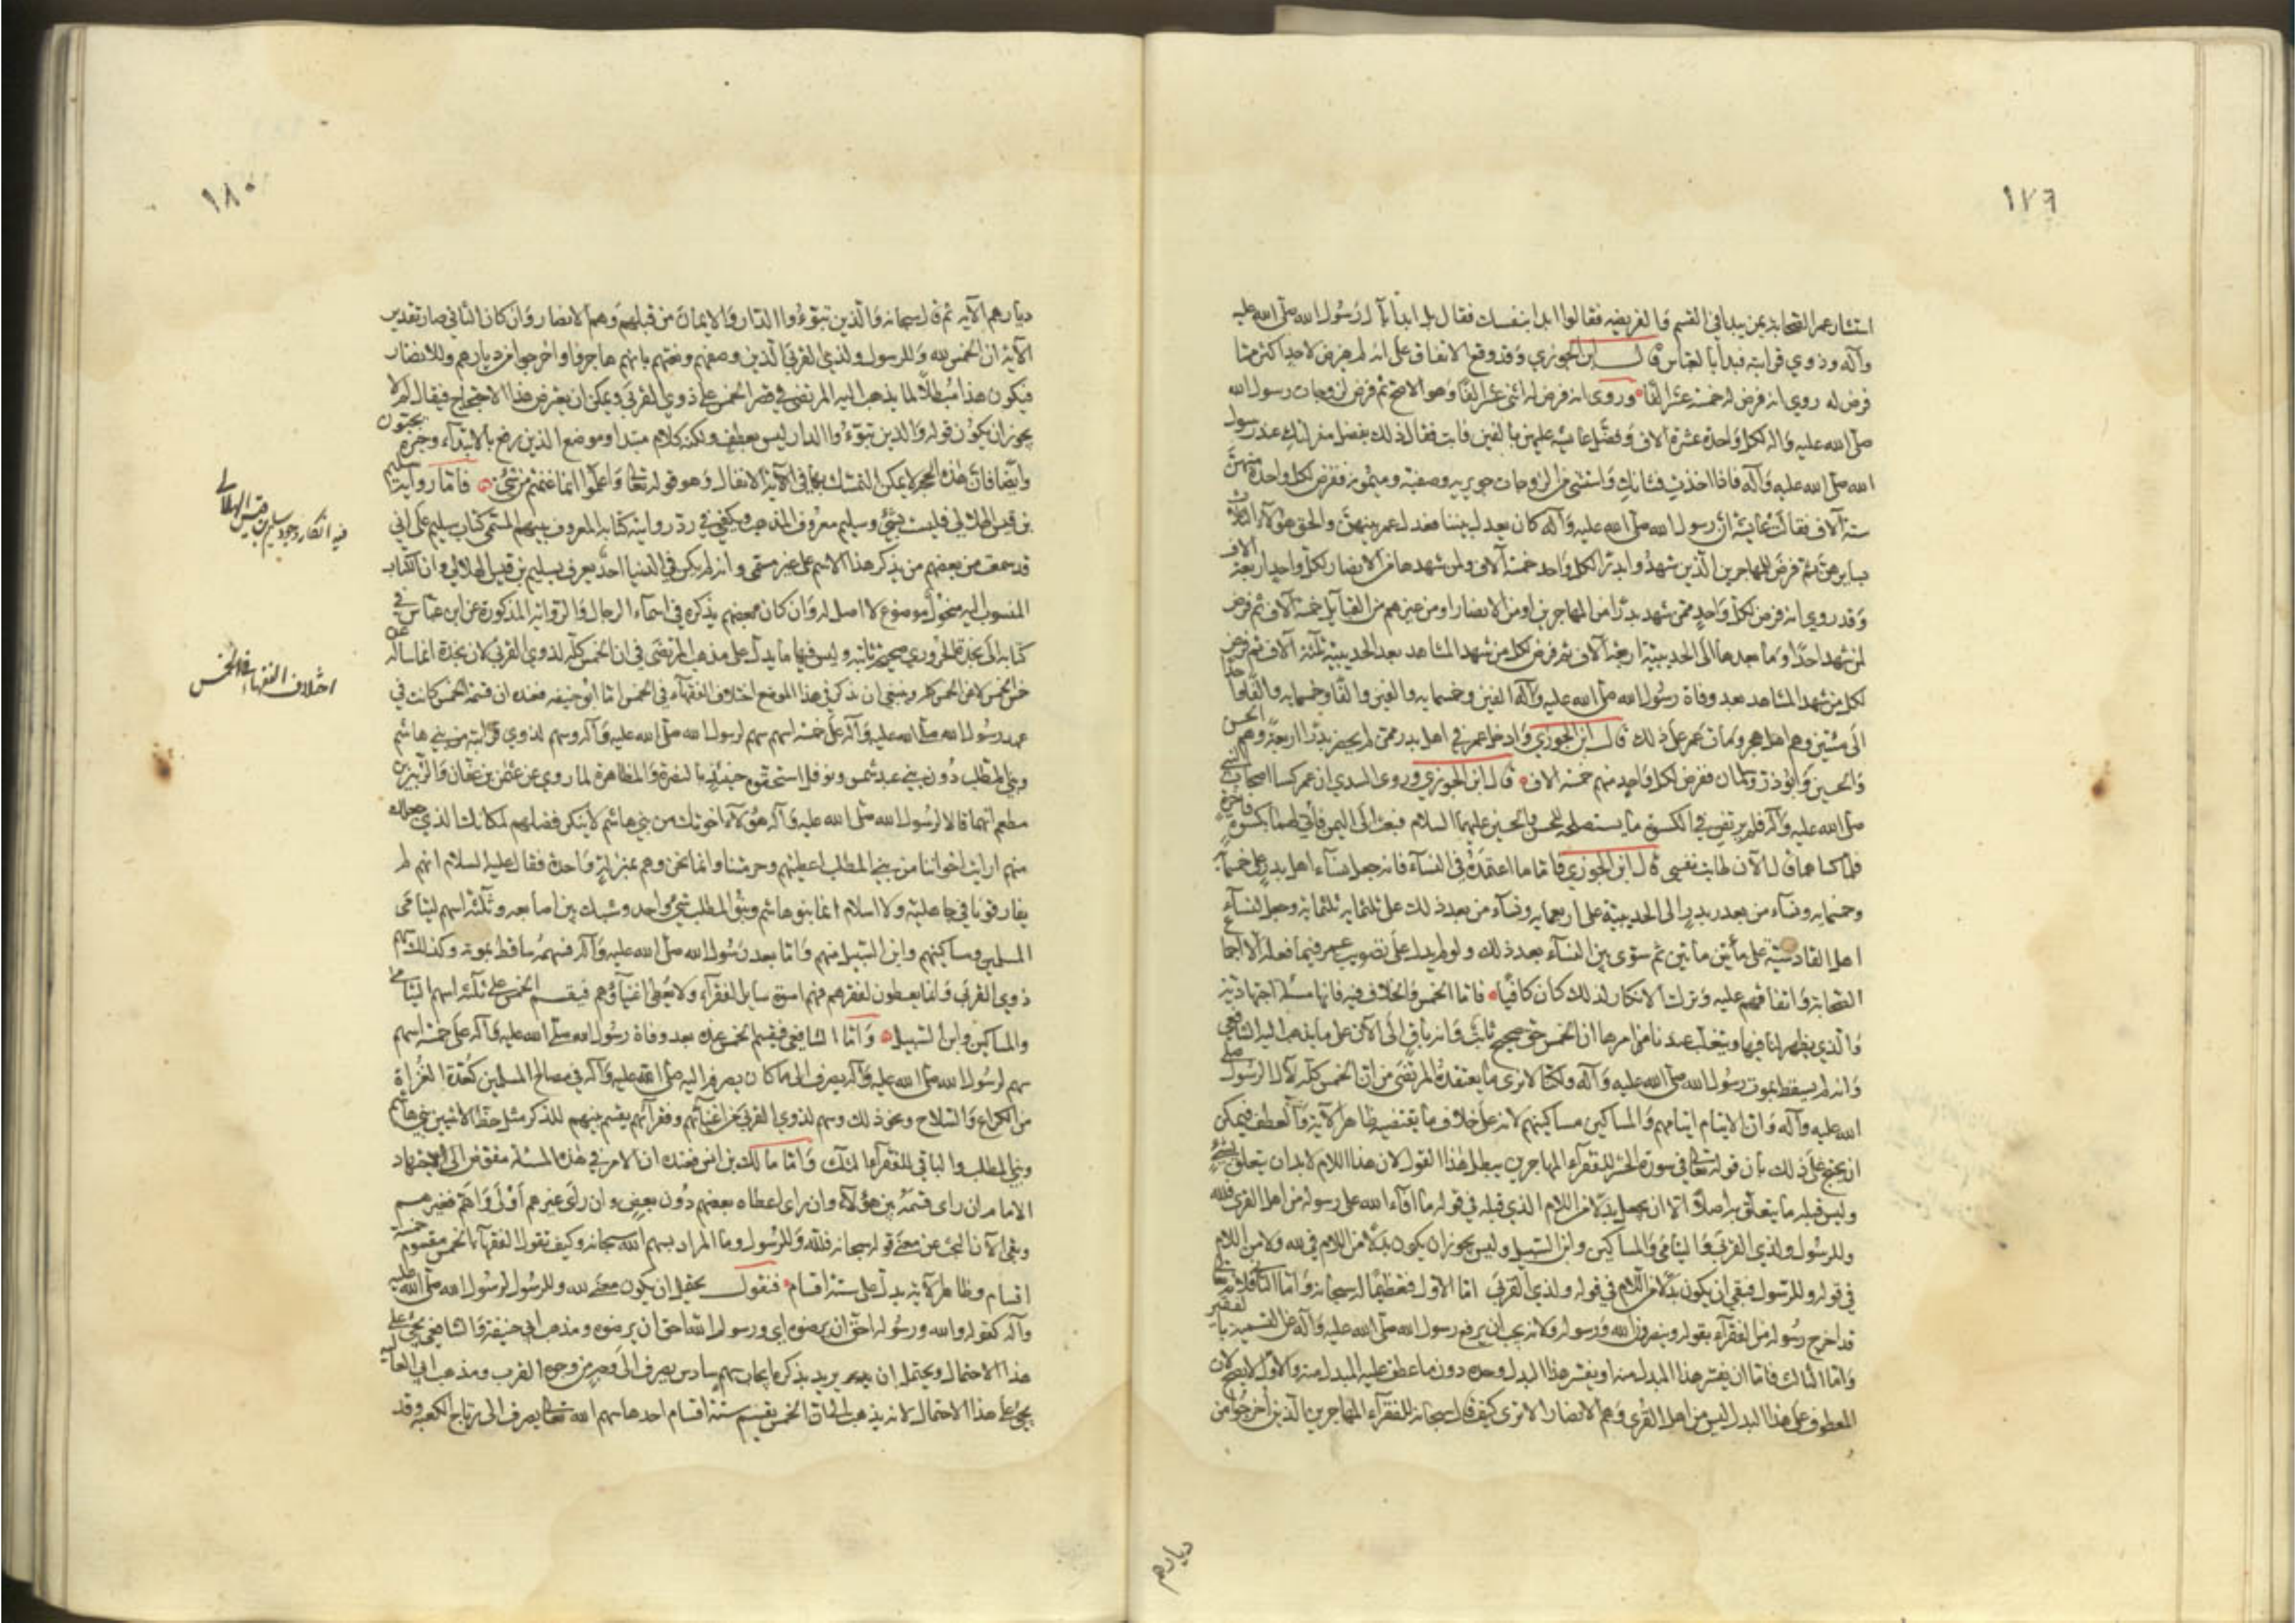 ١٧٩
استشار عمر الصحابة بمن يبدا في القسم والفريضه فقالوا ابدا بنفسك فقال بل ابدا بآل رسول الله صلى الله عليه
وآله وذوي قرابته فبدا بالعباس قال ابن الجوزي وقد وقع الاتفاق على انه لم يفرض لاحد اكثر مما
فرض له روي انه فرض له خمسة عشر الفا وروى انه فرض له اثنى عشر الفا وهو الاصح ثم فرض لزوجات رسول الله
صلى الله عليه واله لكل واحدة عشرة الاف وفضل عايشه عليهن بالفين فابت فقال ذلك بفضل منزلتك عند رسول
الله صلى الله عليه وآله فاذا اخذت فشانك واستثنى من الزوجات جويريه وصفية وميمونه ففرض لكل واحدة منهن
ستة آلاف فقالت عايشة ان رسول الله صلى الله عليه وآله كان يعدل بيننا فعدل عمر بينهن والحق هؤلاء الثلاث
بسايرهن ثم فرض للمهاجرين الذين شهدوا بدرا لكل واحد خمسة آلاف ولمن شهدها من الانصار لكل واحد اربعة الاف
وقد روي انه فرض لكل واحد ممن شهد بدرا من المهاجرين او من الانصار او من غيرهم من القبايل خمسة آلاف ثم فرض
لمن شهد احدا وما بعدها الى الحديبية اربعة آلاف ثم فرض لكل من شهد المشاهد بعد الحديبية ثلثة الاف ثم فرض
لكل من شهد المشاهد بعد وفاة رسول الله صلى الله عليه وآله الفين وخمسمايه والفين والفا وخمسمايه والفا واحدا
الى مئتين وهم اهل هجر ومات عمر على ذلك قال ابن الجوزي وادخل عمر في اهل بدر ممن لم يحضر بدرا اربعة وهم الحسن
والحسين وابوذر وسلمان ففرض لكل واحد منهم خمسة الاف قال ابن الجوزي وروى السدي ان عمر كسا اصحاب النبي
صلى الله عليه وآله فلم يرتض في الكسوة ما يستصلحه للحسن والحسين عليهما السلام فبعث الى اليمن فاتي لهما بكسوة فاخرة
فلما كساهما قال الآن طابت نفسي قال ابن الجوزي فاما ما اعتمده في النساء فانه جعل نساء اهل بدر على خمسمائة
وخمسمايه ونساء من بعد بدر الى الحديبية على اربعمايه ونساء من بعد ذلك على ثلثمايه ثلثمايه وجعل نساء
اهل القادسية على مأتين مأتين ثم سوى بين النساء بعد ذلك ولو لم يدل على تصويب عمر فيما فعله الا اجماع
الصحابة واتفاقهم عليه وترك الانكار لذلك كان كافيا فاما الخمس والخلاف فيه فانها مسئلة اجتهادية
والذي يظهر لنا فيها ويغلب عندنا من امرها ان الخمس حق صحيح ثابت وانه باق الى الآن على ما يذهب اليه الشافعي
وانه لم يسقط بموت رسول الله صلى الله عليه وآله ولكنا لا نرى ما يعتقده المرتضى من ان الخمس كله لآل الرسول صلى
الله عليه وآله وان الايتام ايتامهم والمساكين مساكينهم لانه على خلاف ما يقتضيه ظاهر الآية والعطف فيمكن
ان يحتج على ذلك بان قوله تعالى في سورة الحشر للفقراء المهاجرين يبطل هذا القول لان هذا اللام لا بد ان يتعلق بشئ
وليس قبله ما يتعلق به اصلا الا ان يجعل بدلا من اللام الذي قبله في قوله ما افاء الله على رسوله من اهل القرى فلله
وللرسول ولذي القربى واليتامى والمساكين وابن السبيل وليس يجوز ان يكون بدلا من اللام في لله ولا من اللام
في قوله وللرسول فبقي ان يكون بدلا من اللام في قوله ولذي القربى اما الاول فتعظيما له سبحانه واما الثاني فلانه تعالى
قد اخرج رسوله من الفقراء بقوله وينصرون الله ورسوله ولانه يجب ان يرفع رسول الله صلى الله عليه وآله عن التسمية بالفقير
واما الثالث فاما ان يفسر هذا المبدل منه او يفسر هذا البدل وحده دون ما عطف عليه المبدل منه والاول لا يصح لان
المعطوف على هذا البدل ليس من اهل القرى وهم الانصار الا ترى كيف قال سبحانه للفقراء المهاجرين الذين اخرجوا من
ديارهم
١٨٠
ديارهم الآيه ثم قال سبحانه والذين تبوءوا الدار والايمان من قبلهم وهم الانصار وان كان الثاني صار تقدير
الآية ان الخمس لله وللرسول ولذي القربى الذين وصفهم ونعتهم بانهم هاجروا واخرجوا من ديارهم وللانصار
فيكون هذا مبطلا لما يذهب اليه المرتضى في قصر الخمس على ذوي القربى ويمكن ان يعترض هذا الاحتجاج فيقال لم لا
يجوز ان يكون قوله والذين تبوءوا الدار ليس بعطف ولكنه كلام مبتدا وموضع الذين رفع بالابتداء وخبره يحبون
وايضا فان هذه الحجة لا يمكن التمسك بها في الآية الانفال وهو قوله تعالى واعلموا انما غنمتم من شئ فاما رواية سليم
بن قيس الهلالي فليست بشئ وسليم معروف المذهب ويكفي في رد روايته كتابه المعروف بينهم المسمى كتاب سليم على اني
قد سمعت من بعضهم من يذكر هذا الاسم على غير مسمى وانه لم يكن في الدنيا احد يعرف بسليم بن قيس الهلالي وان الكتاب
المنسوب اليه منحول موضوع لا اصل له وان كان بعضهم يذكره في اسماء الرجال والرواية المذكورة عن ابن عباس في
كتابه الى نجدة الحروري صحيحة ثابتة وليس فيها ما يدل على مذهب المرتضى في ان الخمس كله لذوي القربى لان نجدة انما ساله عن
خمس الخمس لا عن الخمس كله وينبغي ان نذكر في هذا الموضع اختلاف الفقهاء في الخمس اما ابو حنيفه فعنده ان قسمة الخمس كانت في
عهد رسول الله صلى الله عليه وآله على خمسة اسهم سهم لرسول الله صلى الله عليه وآله وسهم لذوي قرابته من بني هاشم
وبني المطلب دون بني عبد شمس ونوفل استحقوه حينئذ بالنصرة والمظاهرة لما روي عن عثمن بن عفان والزبير بن
مطعم انهما قالا لرسول الله صلى الله عليه وآله هؤلاء اخوتك من بني هاشم لا ينكر فضلهم لمكانك الذي جعلك الله
منهم ارايت اخواننا من بني المطلب اعطيتهم وحرمتنا وانما نحن وهم بمنزلة واحدة فقال عليه السلام انهم لم
يفارقونا في جاهلية ولا اسلام انما بنو هاشم وبنو المطلب شئ واحد وشبك بين اصابعه وثلثة اسهم ليتامى
المسلمين ومساكينهم وابن السبيل منهم واما بعد رسول الله صلى الله عليه وآله فسهمه ساقط بموته وكذلك سهم
ذوي القربى وانما يعطون لفقرهم فهم اسوة ساير الفقراء ولا يعطى اغنياؤهم فيقسم الخمس على ثلثة اسهم اليتامى
والمساكين وابن السبيل واما الشافعي فيقسم الخمس عنده بعد وفاة رسول الله صلى الله عليه وآله على خمسة اسهم
سهم لرسول الله صلى الله عليه وآله يصرف الى ما كان يصرفه اليه صلى الله عليه وآله في مصالح المسلمين كعدة الغزاة
من الكراع والسلاح ونحو ذلك وسهم لذوي القربى من اغنيائهم وفقرائهم يقسم بينهم للذكر مثل حظ الانثيين بني هاشم
وبني المطلب والباقي للفقراء الثلث واما مالك بن انس فعنده ان الامر في هذه المسئلة مفوض الى اجتهاد
الامام ان راى قسمه بين هؤلاء وان راى اعطاه بعضهم دون بعض وان راى غيرهم اولى واهم فغيرهم
وبقي الآن البحث عن معنى قوله سبحانه فلله وللرسول وما المراد بسهم الله سبحانه وكيف تقول الفقهاء الخمس مقسوم خمسة
اقسام وظاهر الآية يدل على ستة اقسام فنقول يحتمل ان يكون معنى لله وللرسول لرسول الله صلى الله عليه
وآله كقوله والله ورسوله احق ان يرضوه اي ورسول الله احق ان يرضوه ومذهب ابي حنيفة والشافعي يجئ على
هذا الاحتمال ويحتمل ان يريد بذكره ايجاب سهم سادس يصرف الى وجه من وجوه القرب ومذهب ابي العالية
يجئ على هذا الاحتمال لانه يذهب الى ان الخمس يقسم ستة اقسام احدها سهم الله تعالى يصرف الى رتاج الكعبه وقد
فيه انكار وجود سليم بن قيس الهلالي
اختلاف الفقهاء في الخمس